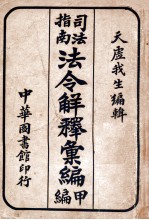 天虛我生編輯
司法
指南
法令解釋彙編甲
編
中華圖書館印行